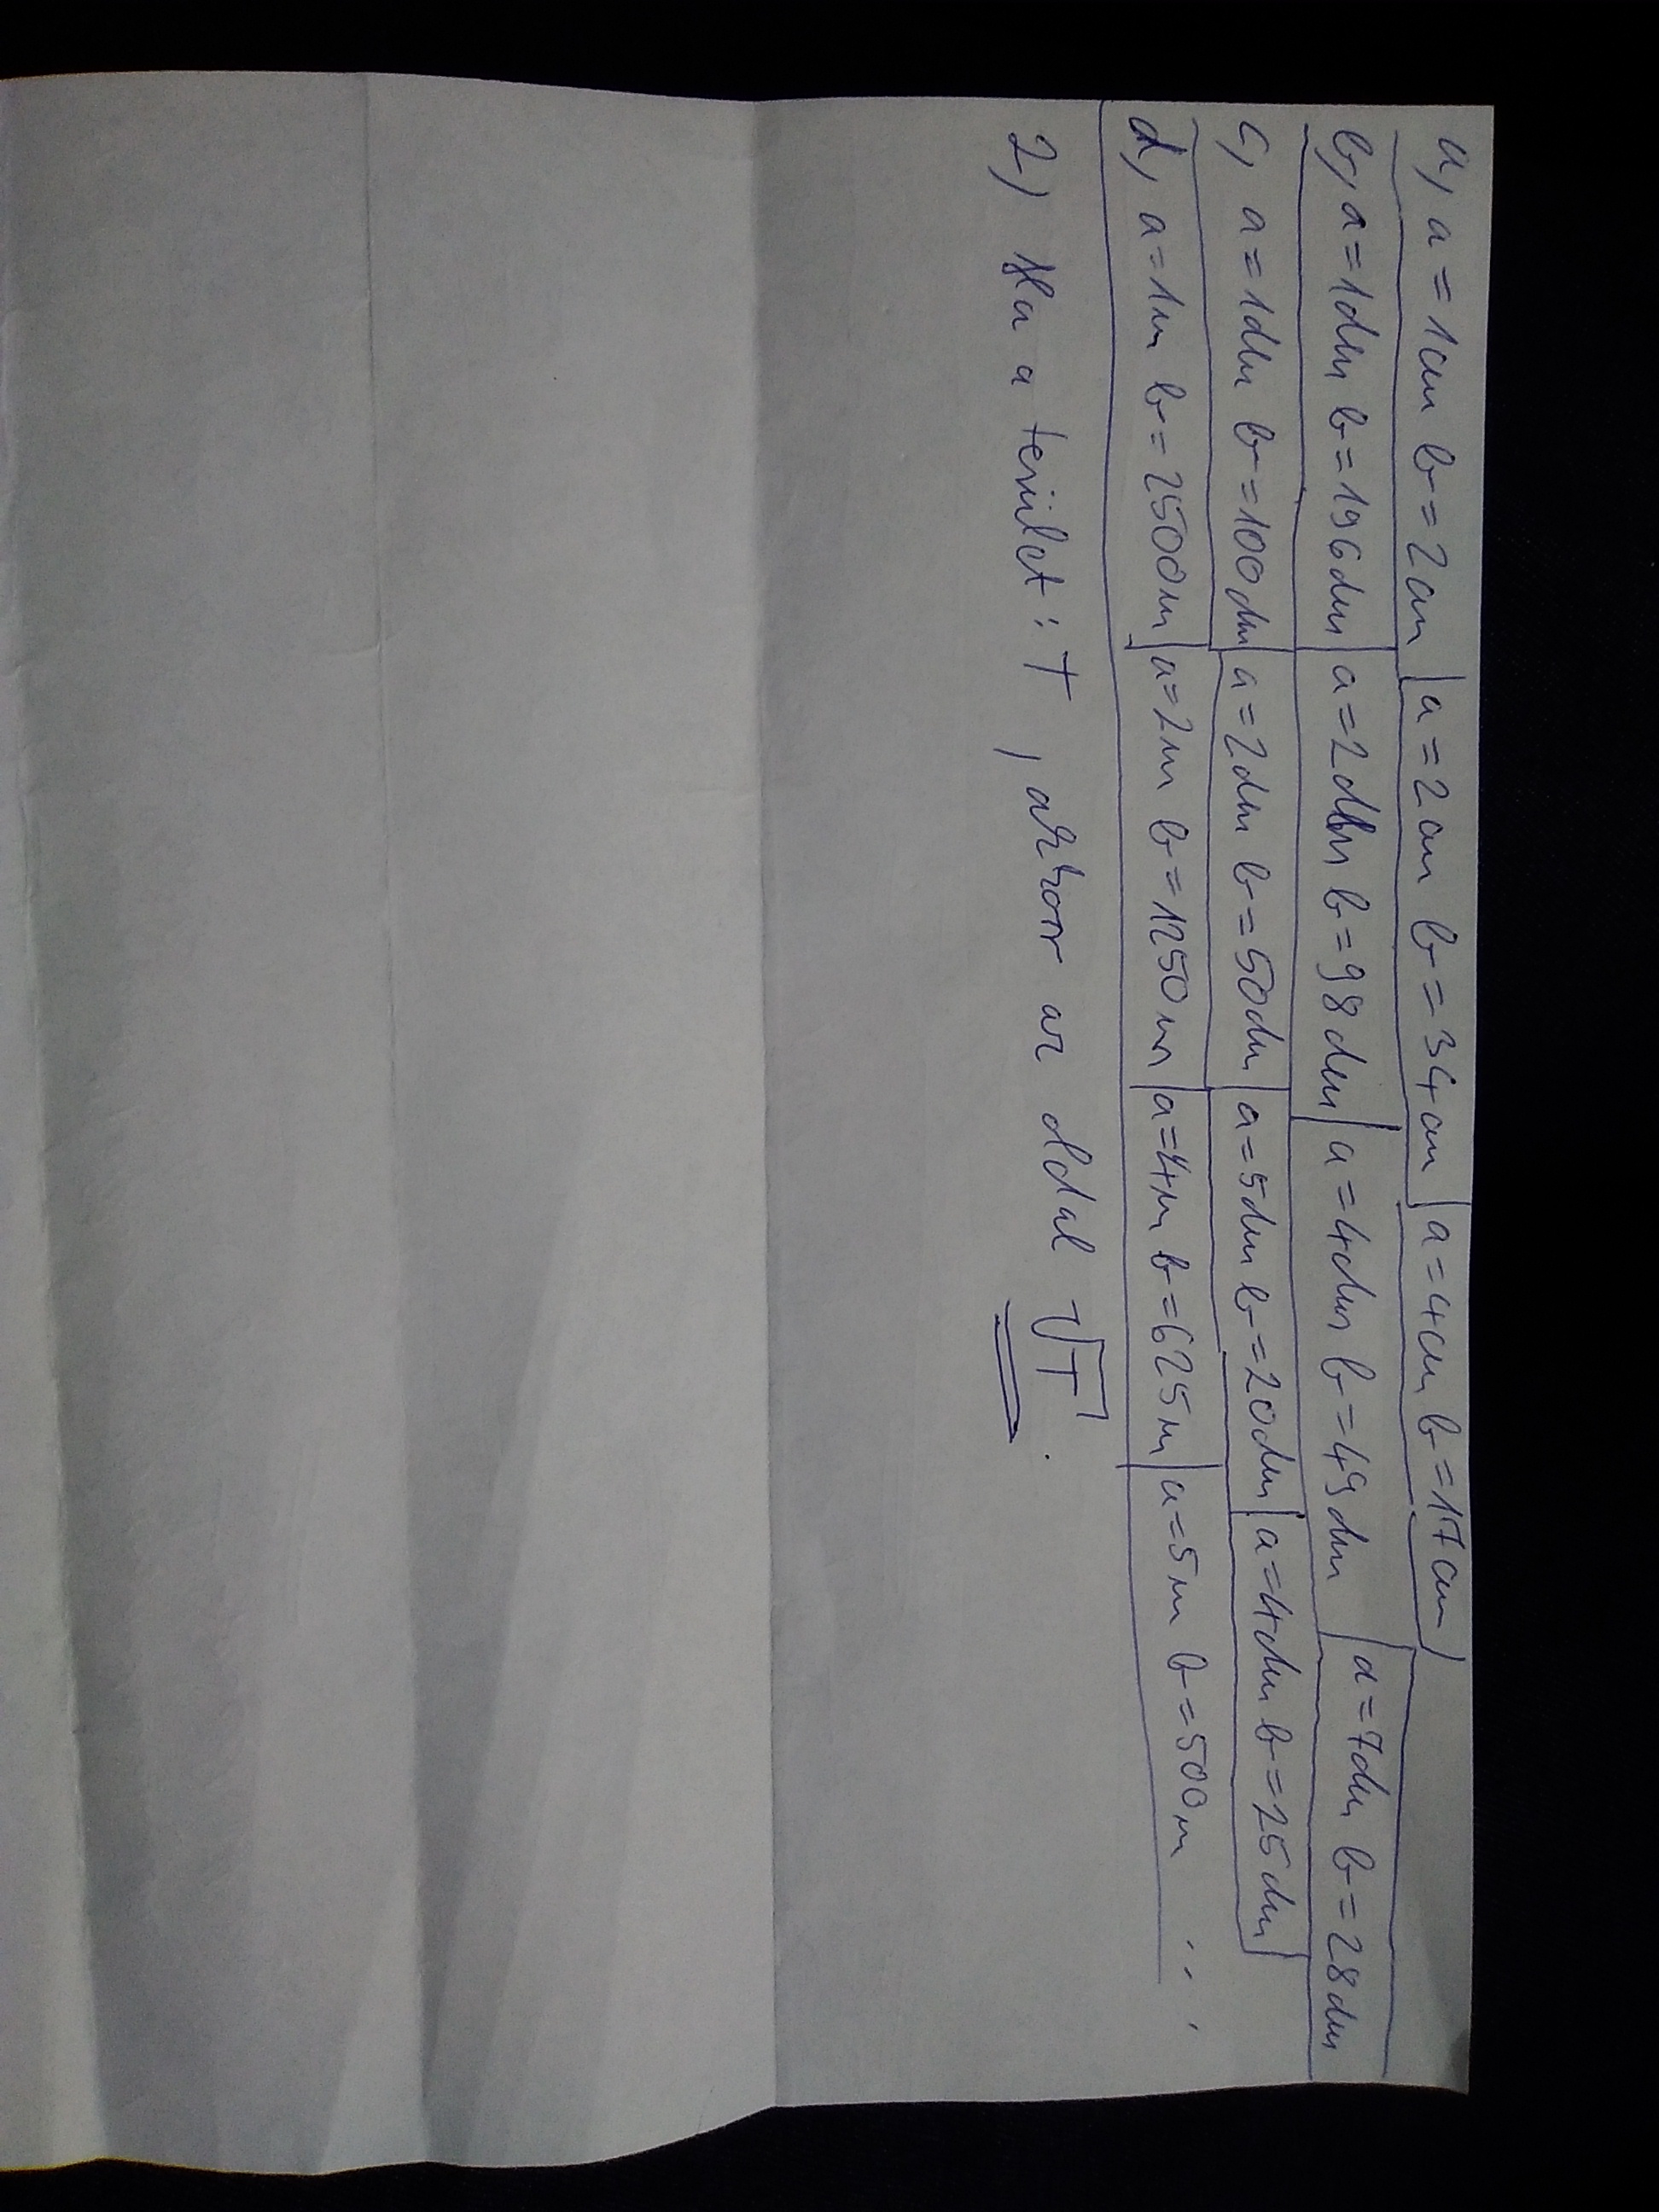 a, a=1cm b=2cm | a=2cm b=34cm | a=4cm b=17cm |
b, a=1dm b=196dm | a=2dm b=98dm | a=4dm b=49dm | a=7dm b=28dm
c, a=1dm b=100dm | a=2dm b=50dm | a=5dm b=20dm | a=4dm b=25dm |
d, a=1m b=2500m | a=2m b=1250m | a=4m b=625m | a=5m b=500m ...
2) Ha a terület: T, akkor az oldal √T.